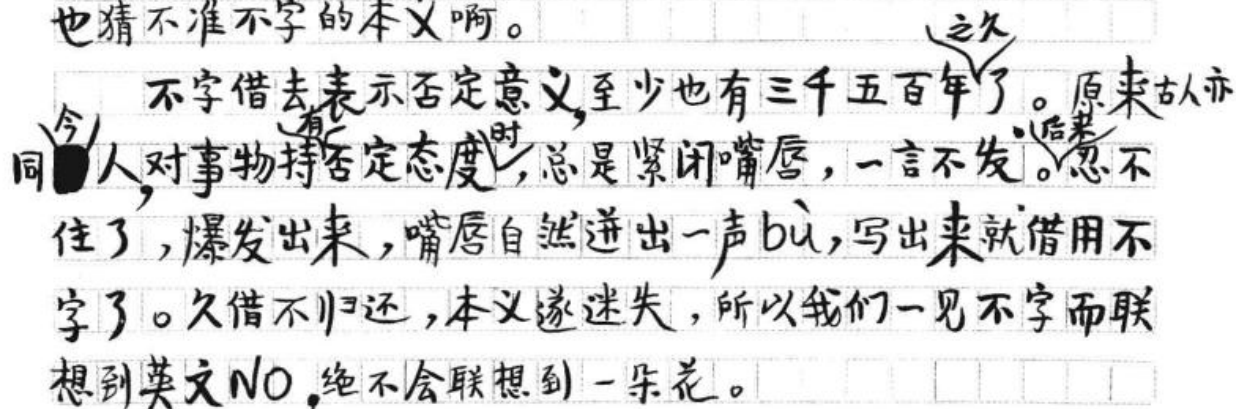 也猜不准不字的本义啊。
不字借去表示否定意义,至少也有三千五百年之久了。原来古人亦
同今人,对事物持有否定态度时,总是紧闭嘴唇,一言不发。后来忍不
住了,爆发出来,嘴唇自然迸出一声bù,写出来就借用不
字了。久借不归还,本义遂迷失,所以我们一见不字而联
想到英文NO,绝不会联想到一朵花。